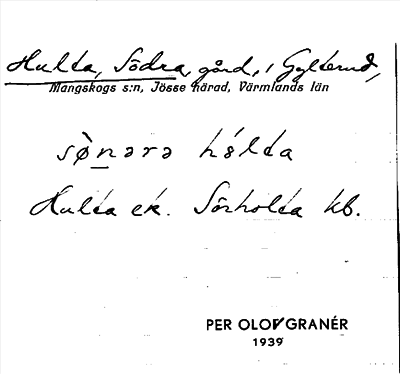 Hulta, Södra, gård, i Gylterud,
Mangskogs s:n, Jösse härad, Värmlands län
sø̀nərə hɷ́lta
Hulta ek. Sörholta kb.
PER OLOV GRANÉR
1939